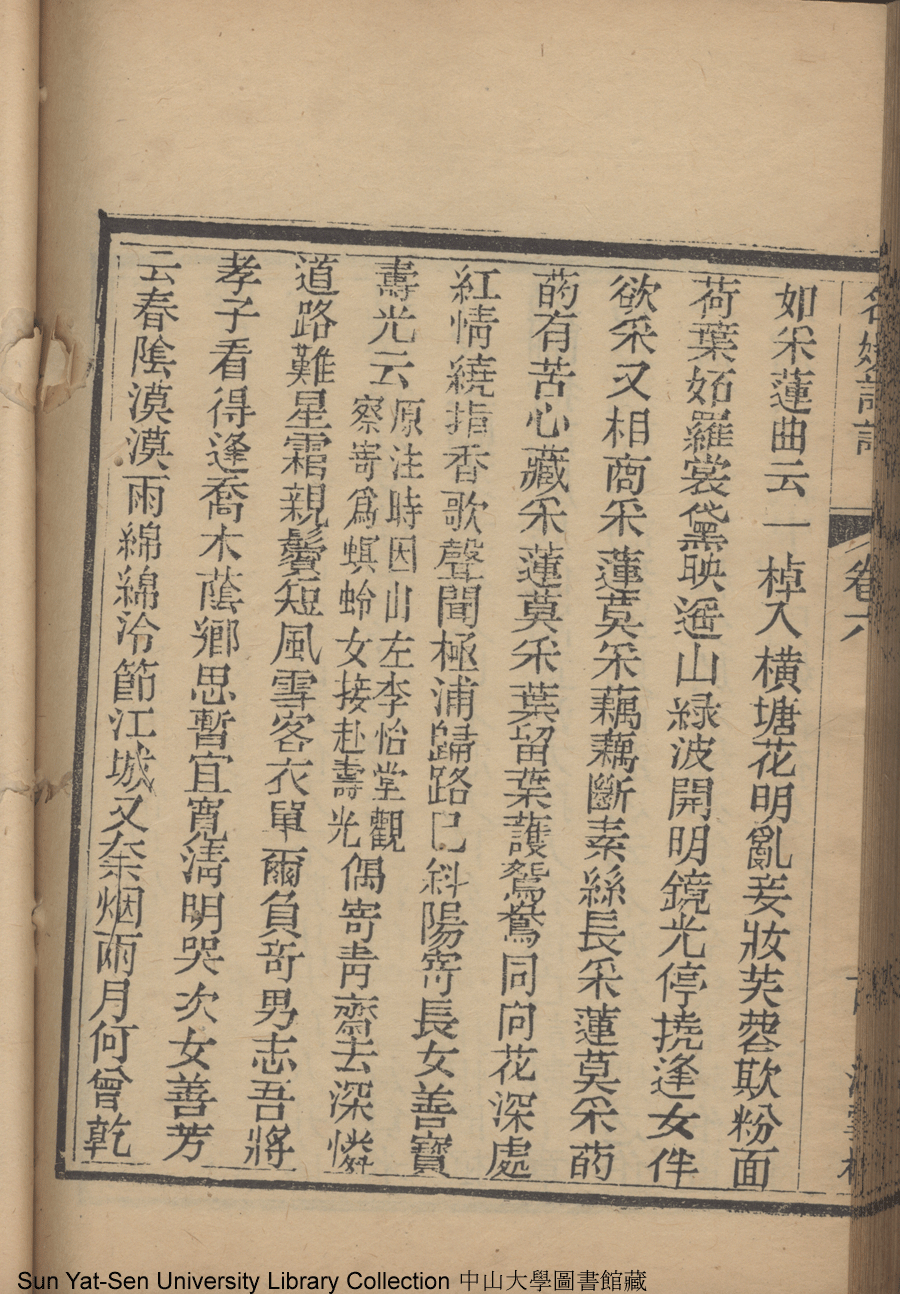 名媛詩話 卷六
如采蓮曲云一棹入橫塘花明亂妾妝芙蓉欺粉面
荷葉妬羅裳黛映遥山綠波開明鏡光停撓逢女伴
欲采又相商采蓮莫采藕藕斷素絲長采蓮莫采菂
菂有苦心藏采蓮莫采葉留葉護鴛鴦同向花深處
紅情繞指香歌聲聞極浦歸路已斜陽寄長女善寶
壽光云原注時因山左李怡堂觀
察寄爲螟蛉女接赴壽光偶寄青齋去深憐
道路難星霜親鬢短風雪客衣單爾負奇男志吾將
孝子看得逢喬木蔭鄉思暫宜寬淸明哭次女善芳
云春陰漠漠雨綿綿冷節江城又奈烟雨月何曾乾
Sun Yat-Sen University Library Collection 中山大學圖書館藏